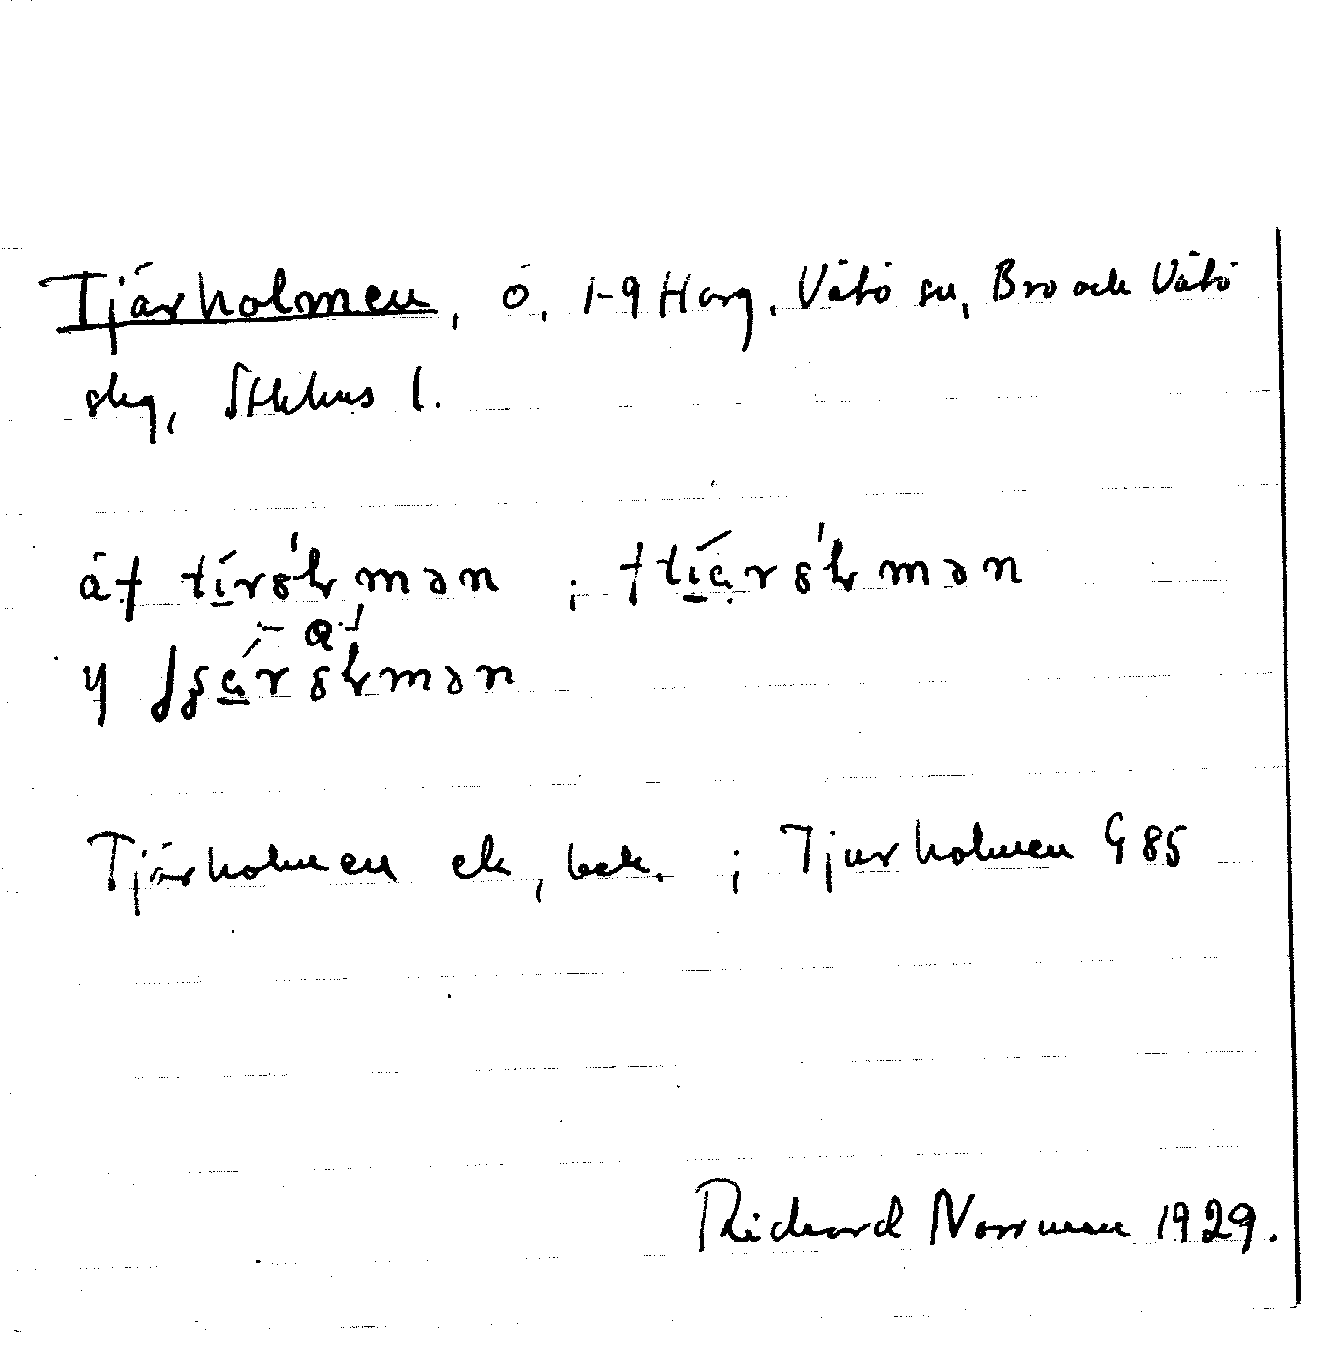 Tjärholmen, ö, 1-9 Harg, Vätö sn, Bro och Vätö
skg, Sthlms l.
ä† tírəɬmən ; †tíɛrəɬmən
y
Tjärholmen ek, bek. ; Tjurholmen G 85
Richard Norrman 1929.